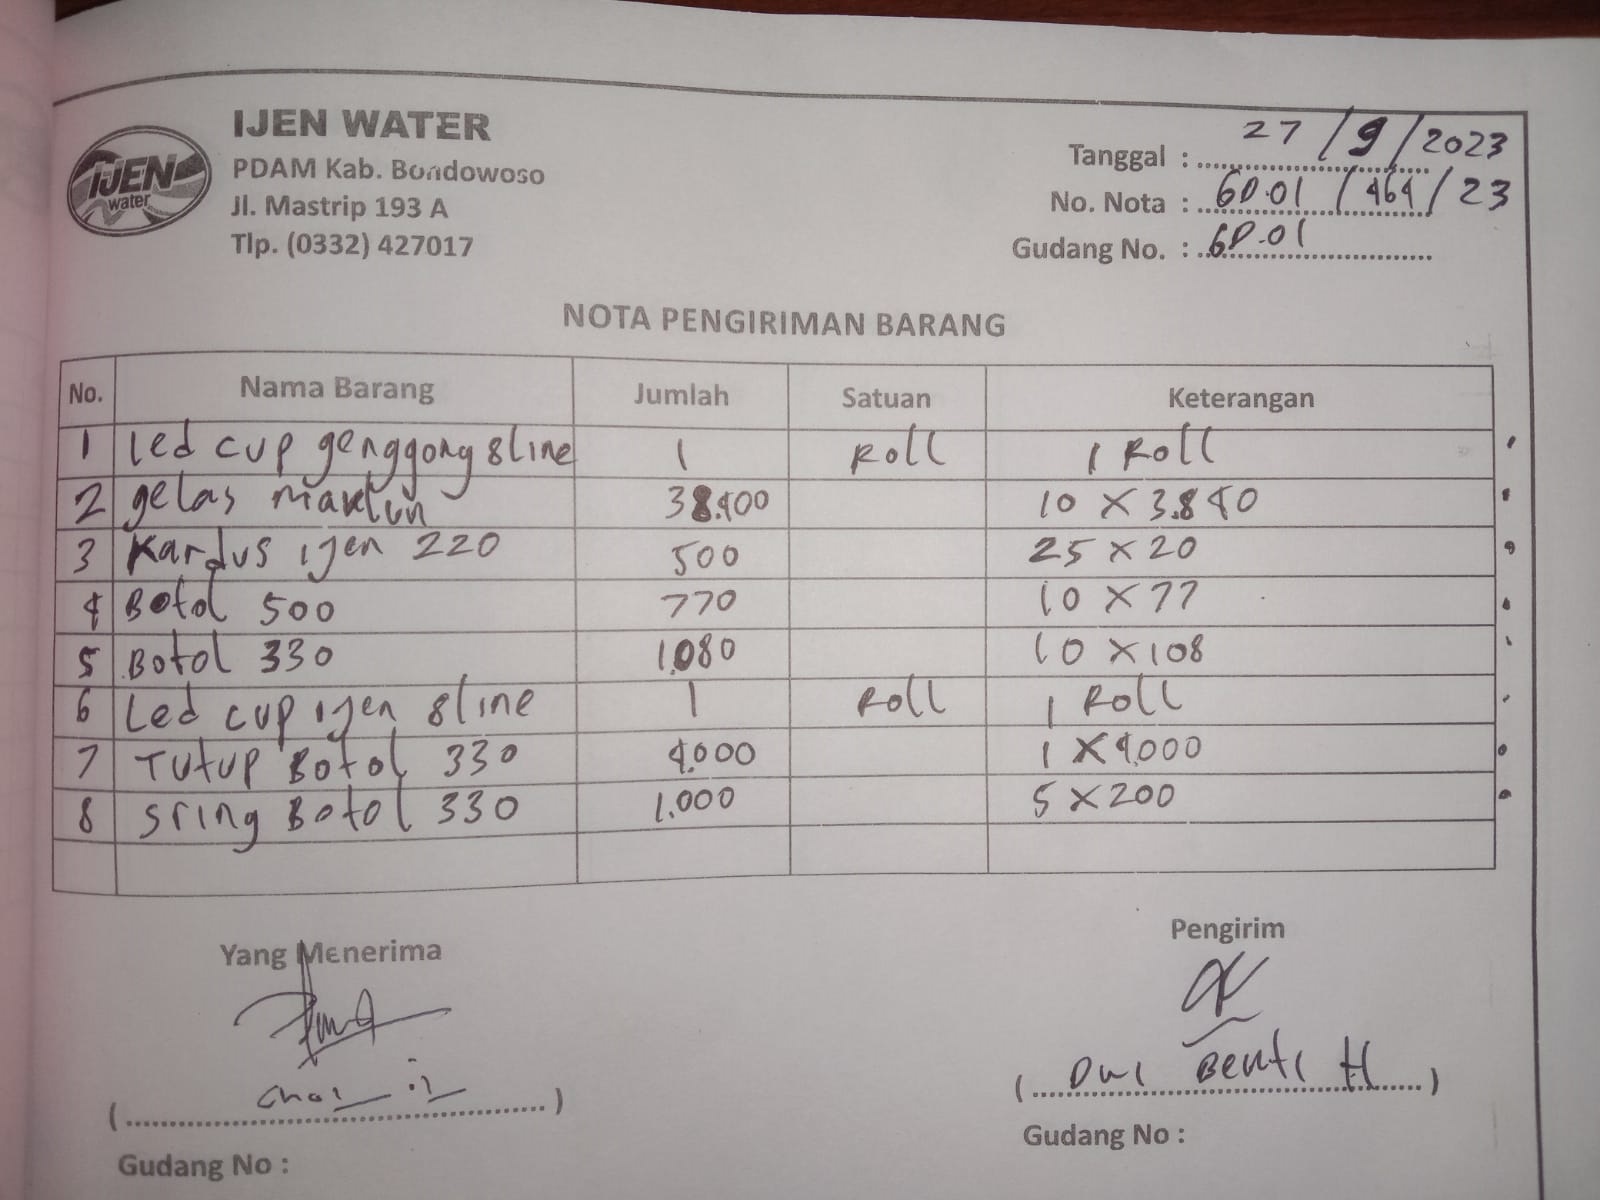 IJEN WATER
PDAM Kab. Bondowoso
Jl. Mastrip 193 A
Tlp. (0332) 427017
IJEN
water
Tanggal : 27 / 9 / 2023
No. Nota : GD.01 / 464 / 23
Gudang No. : GD.01
NOTA PENGIRIMAN BARANG
No. Nama Barang Jumlah Satuan Keterangan
1 Led cup genggong 8 line 1 Roll 1 Roll
2 gelas 38.400 10 X 3.840
3 Kardus ijen 220 500 25 X 20
4 Botol 500 770 10 X 77
5 Botol 330 1.080 10 X 108
6 Led cup ijen 8 line 1 Roll 1 Roll
7 Tutup Botol 330 4.000 1 X 4.000
8 sring Botol 330 1.000 5 X 200
Yang Menerima
Pengirim
( Dwi H )
Gudang No :
Gudang No :